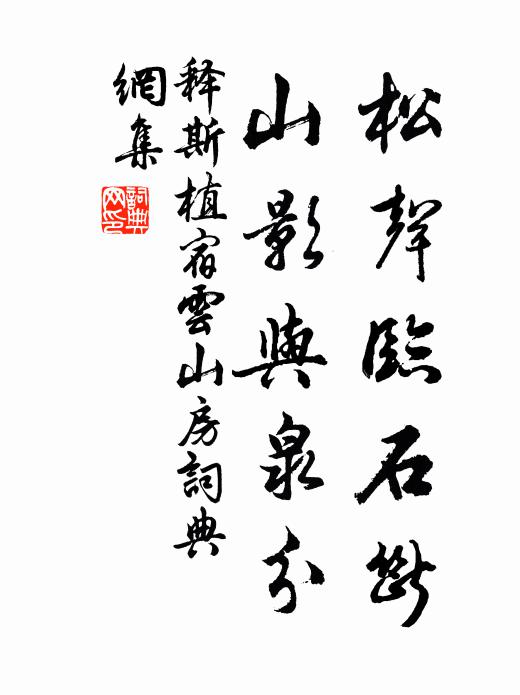 松聲臨石斷
山影與泉分
释斯植宿雲山房詞典
網集
詞典
网印